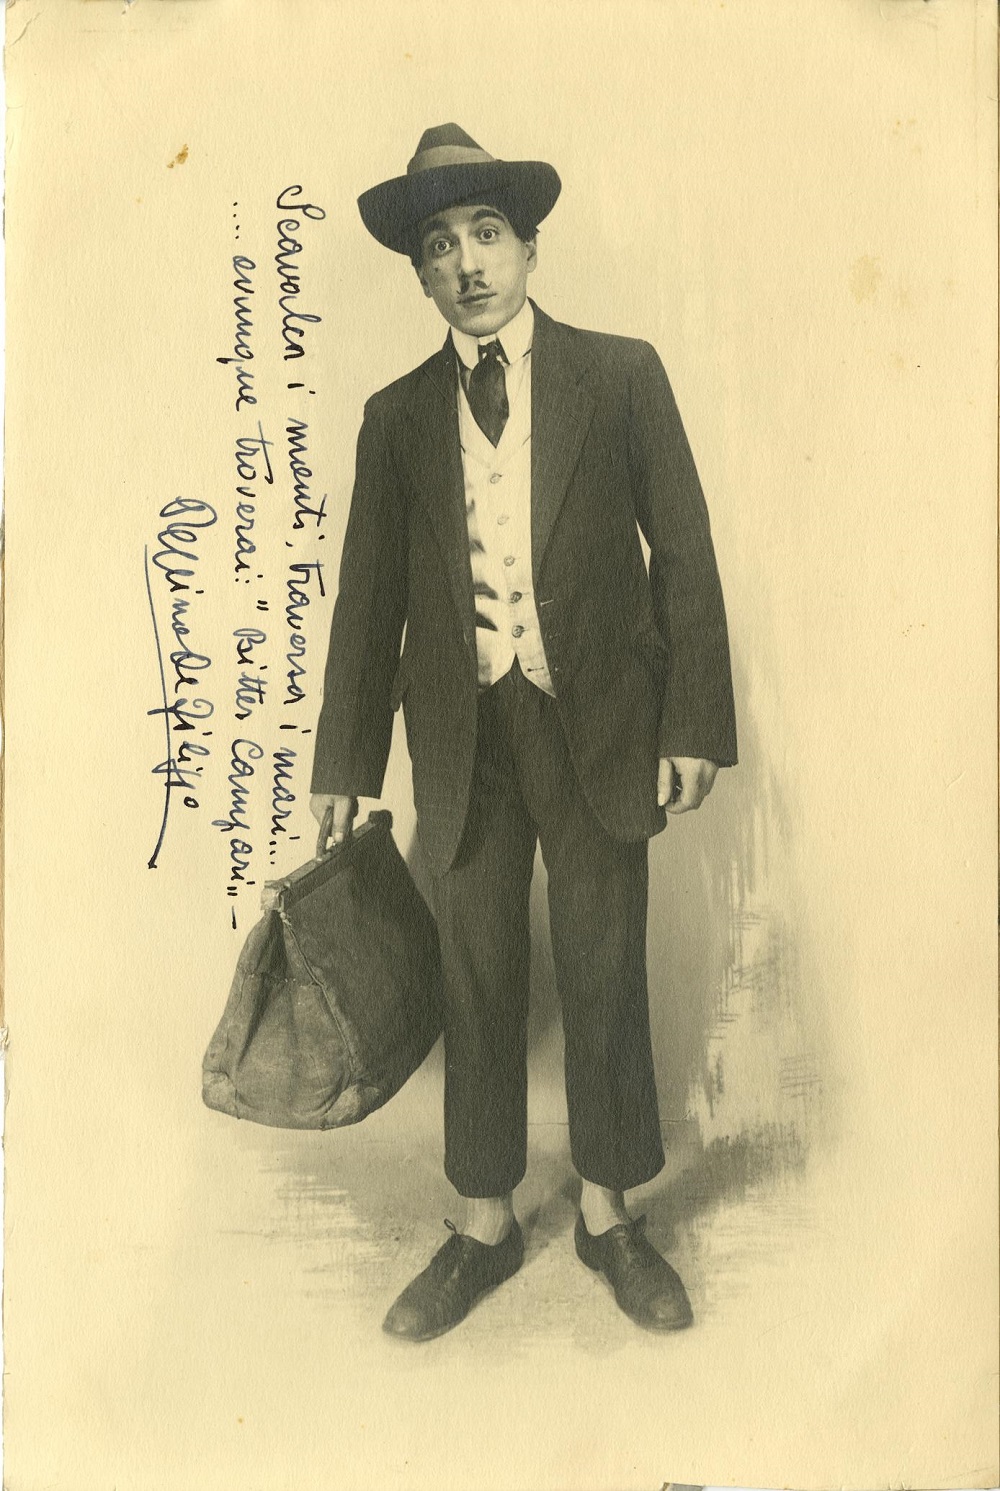 Scavalca i monti, traversa i mari...
.... ovunque troverai: "Bitter Campari" —
Peppino De Filippo